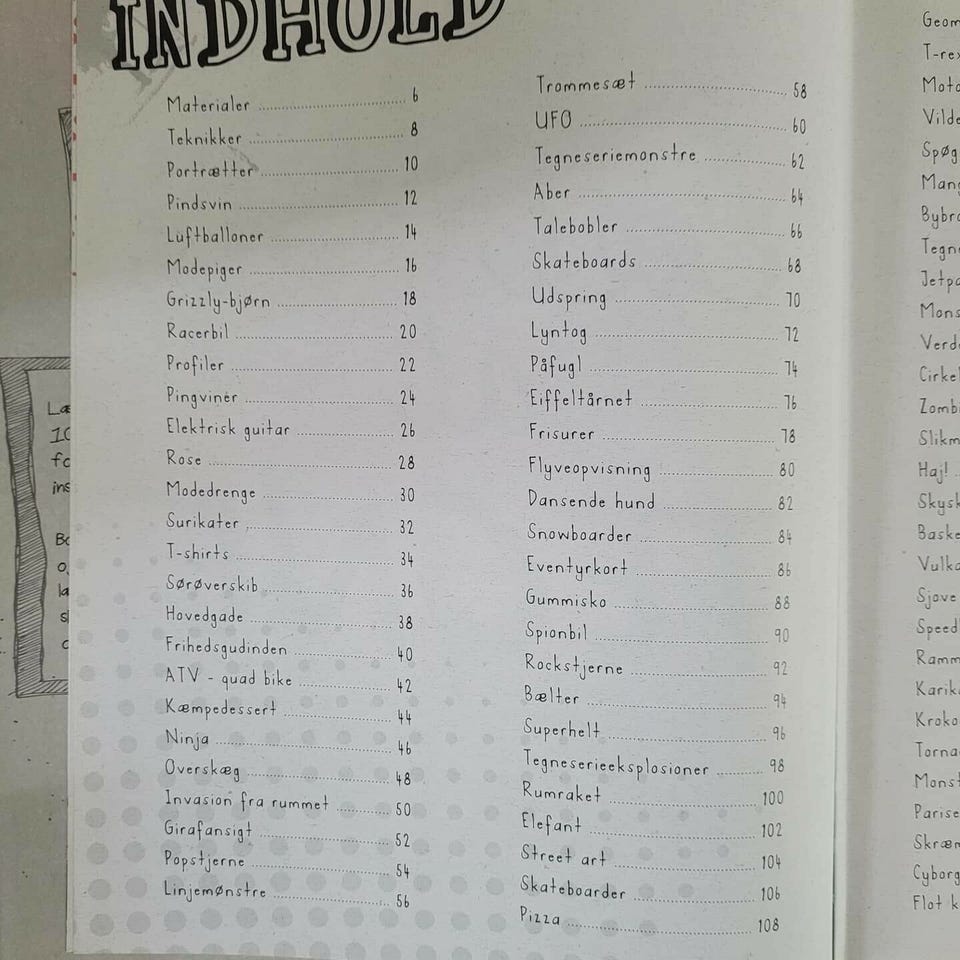 INDHOLD
Materialer 6
Teknikker 8
Portrætter 10
Pindsvin 12
Luftballoner 14
Modepiger 16
Grizzly-bjørn 18
Racerbil 20
Profiler 22
Pingviner 24
Elektrisk guitar 26
Rose 28
Modedrenge 30
Surikater 32
T-shirts 34
Sørøverskib 36
Hovedgade 38
Frihedsgudinden 40
ATV - quad bike 42
Kæmpedessert 44
Ninja 46
Overskæg 48
Invasion fra rummet 50
Girafansigt 52
Popstjerne 54
Linjemønstre 56
Trommesæt 58
UFO 60
Tegneseriemonstre 62
Aber 64
Talebobler 66
Skateboards 68
Udspring 70
Lyntog 72
Påfugl 74
Eiffeltårnet 76
Frisurer 78
Flyveopvisning 80
Dansende hund 82
Snowboarder 84
Eventyrkort 86
Gummisko 88
Spionbil 90
Rockstjerne 92
Bælter 94
Superhelt 96
Tegneserieeksplosioner 98
Rumraket 100
Elefant 102
Street art 104
Skateboarder 106
Pizza 108
Haj!